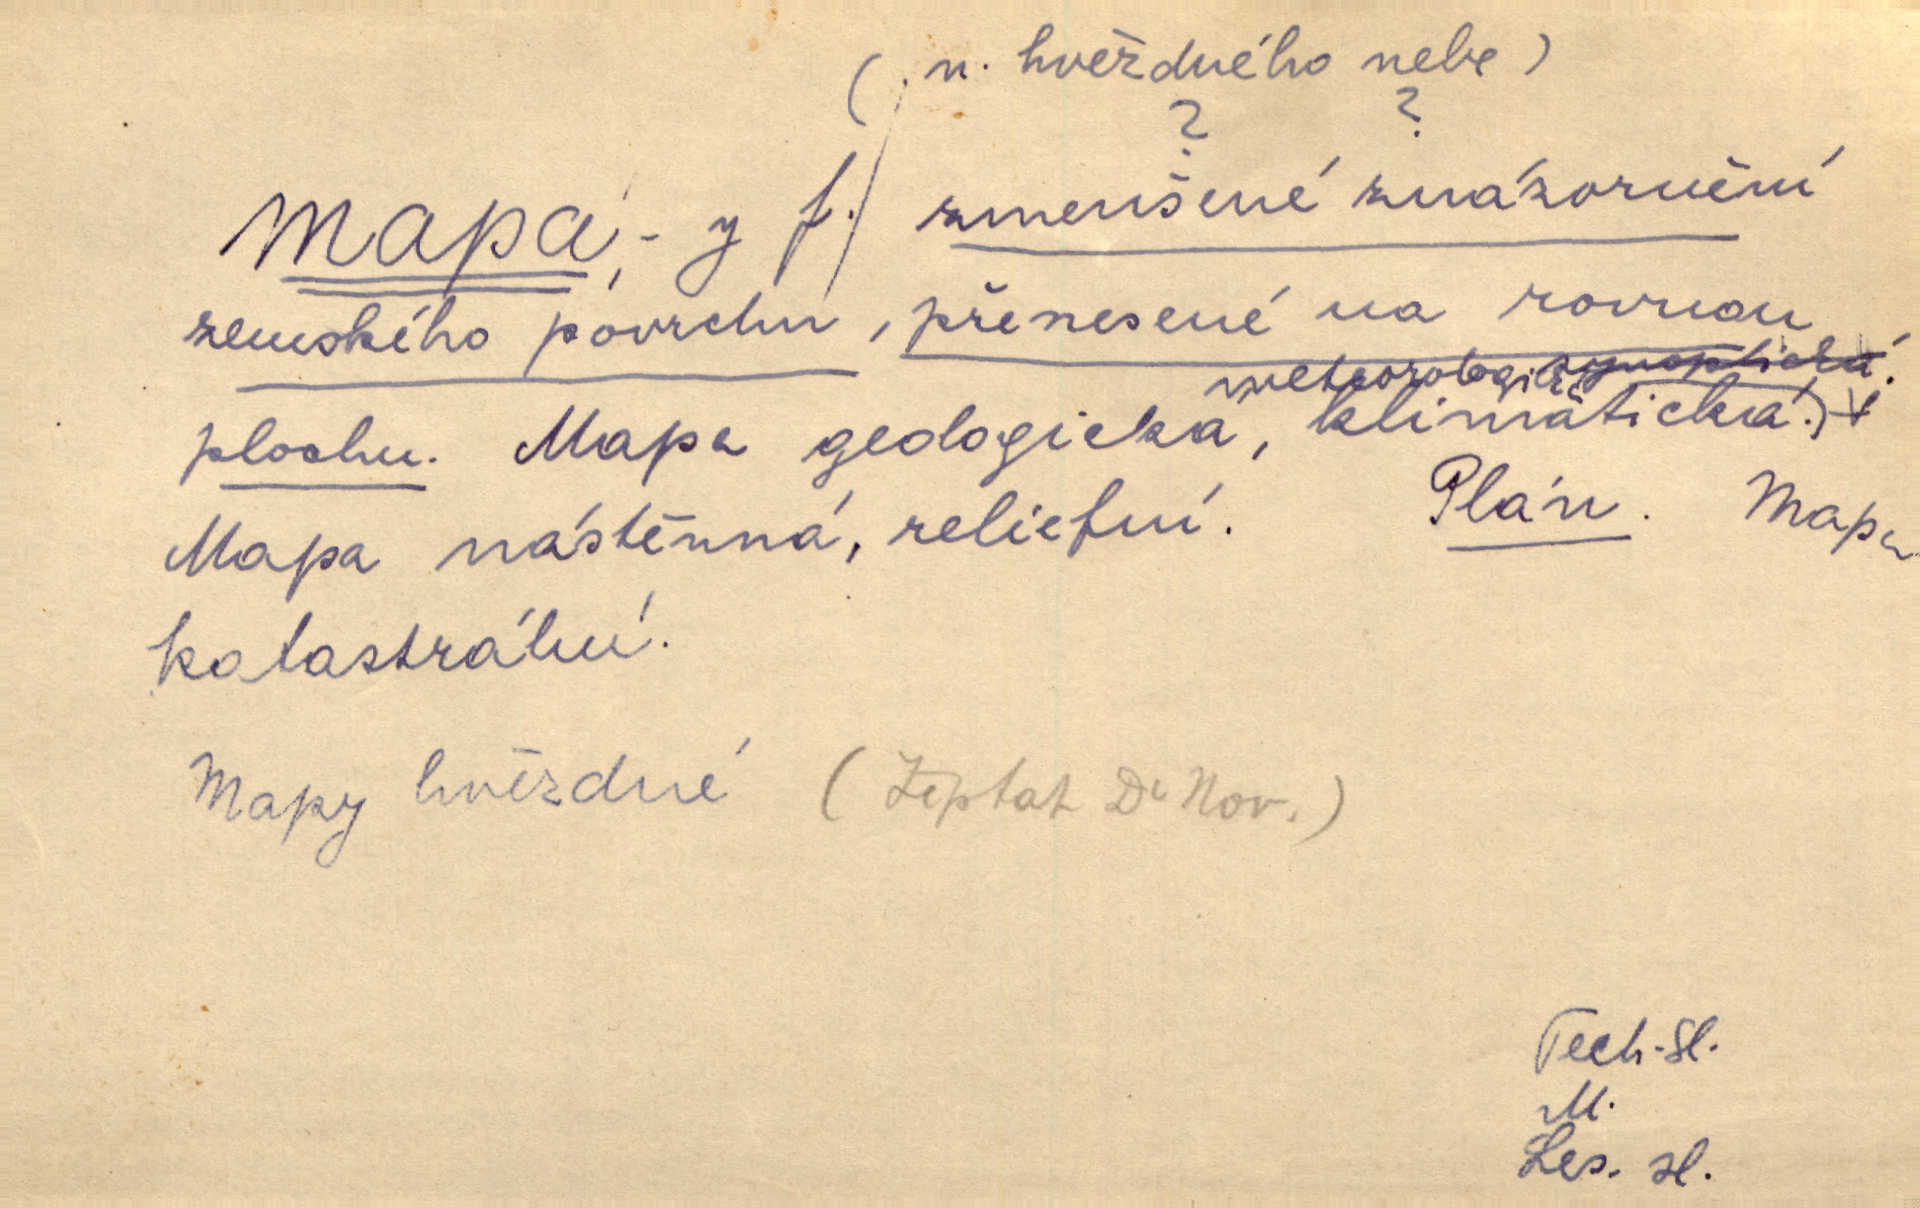 ( n. hvězdného nebe )
? ?
mapa, -y f. / zmenšené znázornění
zemského povrchu, přenesené na rovnou
meteorologická synoptická.
plochu. Mapa geologická, klimatická.) +
Mapa nástěnná, reliefní. Plán. Mapa
katastrální.
Mapy hvězdné ( Zeptat Dr Nov. )
Tech. sl.
M.
Les. sl.